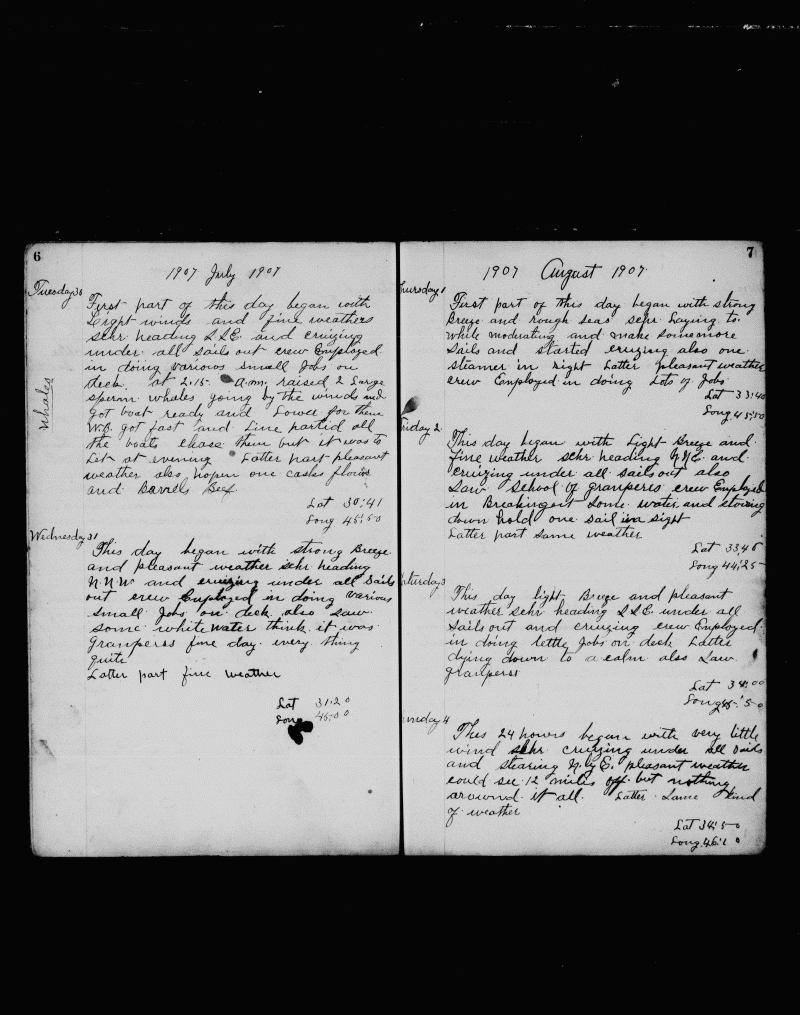 6
1907 July 1907
Tuesday 30
First part of this day began with
Light winds and fine weathers
schr heading S.S.E. and cruizing
under all sails out crew Employed
in doing variows small Jobs on
deck. at 2.15. a.m. raised 2 Large
sperm whales going by the winds and
got boat ready and Lower for them
W.B. got fast and Line partid all
the boats chase them but it was to
Let at evening Latter part pleasant
weather also one casks flour
and Barrels Beef
Whales
Lat 30:41
Long 45:50
Wednesday 31
This day began with strong Breeze
and pleasant weather schr heading
N.N.W and cruizing under all Sails
out crew Employed in doing Various
Small Jobs on deck also saw
some white Water think it was
Granperss fine day. every thing
quite
Latter part fine weather
Lat 31:20
Long 45:00
7
1907 August 1907
hursday 1
First part of this day began with strong
Breeze and rough seas schr Laying to.
while moderating and make some more
Sails and started cruzing also one
steamer in sight Latter pleasant weather
crew Employed in doing Lots of Jobs
Lat 33:40
Long 45:50
riday 2
This day began with Light Breze and
fine weather schr heading N.N.E and
cruizing under all sails out also
Saw School of granperss crew Employed
in Breaking out Some water and stowing
down hold one sail in sight
Latter part same weather
Lat 33,46
Long 44:25
aturday 3
This day light Breze and pleasant
weather schr heading S.S.E. under all
Sails out and cruzing crew Employed
in doing lettle Jobs on deck Latter
dying down to a calm also Saw
granperss
Lat 34:00
Long 45:50
unday 4
This 24 hours began with very little
wind schr cruizing under all Sails
and stearing N.by E. pleasant weather
could see 12 miles off but nothing
arownd it all. Latter Same Kind
of weather
Lat 34:50
Long 46:10